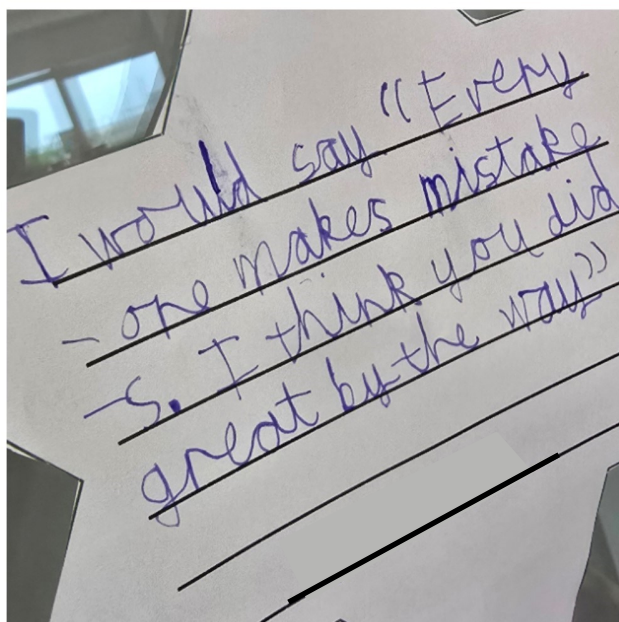 I would say "Every
- one makes mistake
- s. I think you did
great by the way"